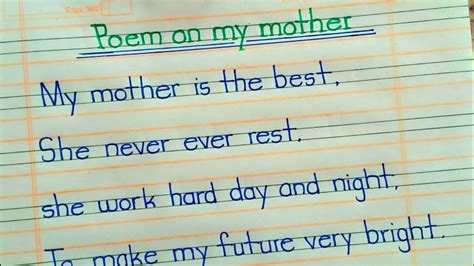 Poem on my mother
My mother is the best,
She never ever rest.
she work hard day and night,
To make my future very bright.